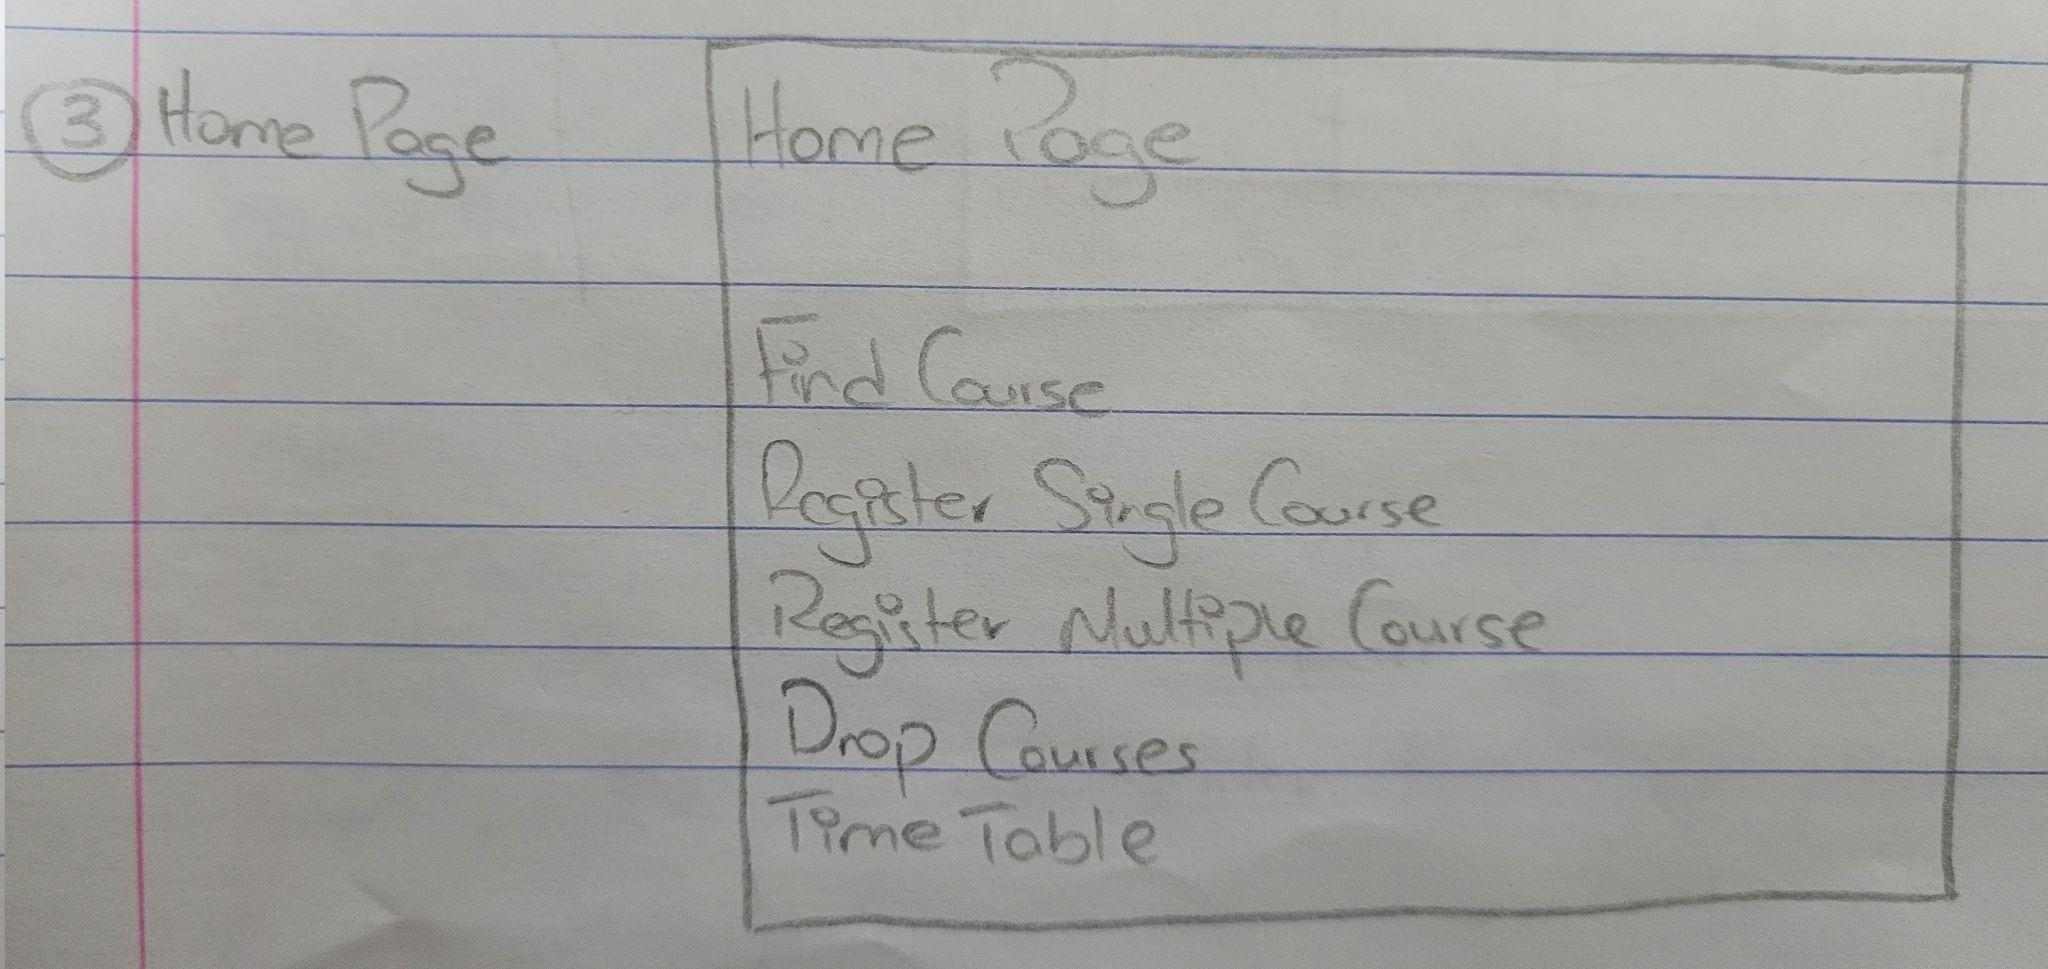 3 Home Page
Home Page
Find Course
Register Single Course
Register Multiple Course
Drop Courses
Time Table